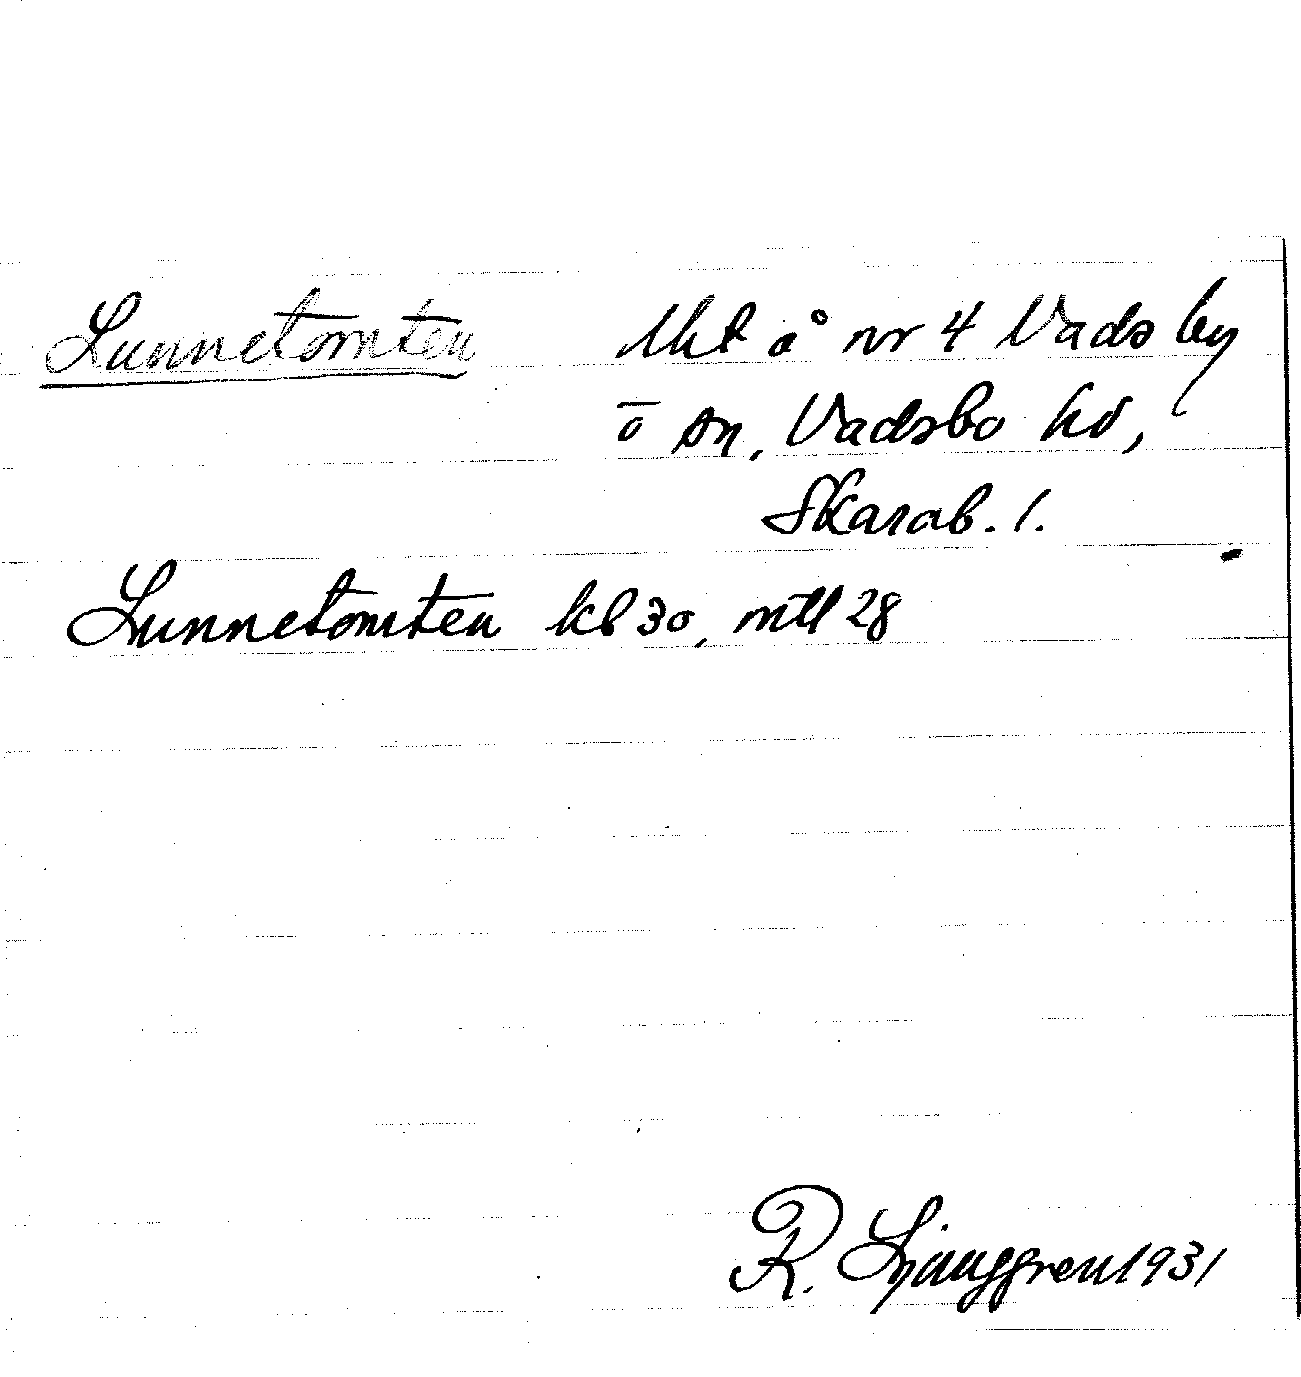 Lunnetomten Uht å nr 4 Vads by
o sn, Vadsbo hd,
Skarab. l.
Lunnetomten kb 30, mtl 28
R. Ljunggren 1931